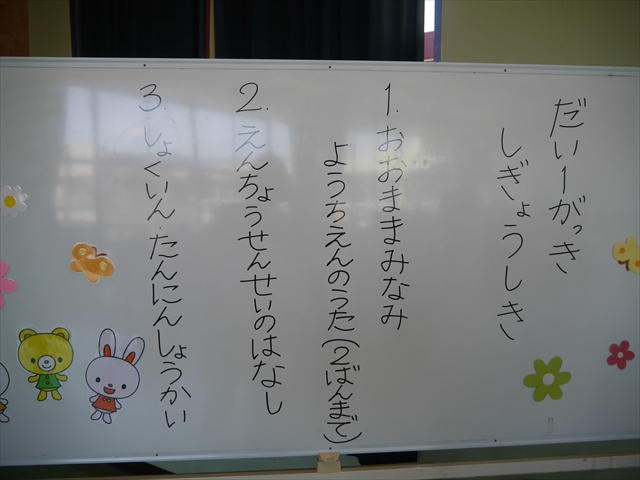 だい1がっき
しぎょうしき
1.おおままみなみ
ようちえんのうた(2ばんまで)
2.えんちょうせんせいのはなし
3.しょくいん・たんにんしょうかい